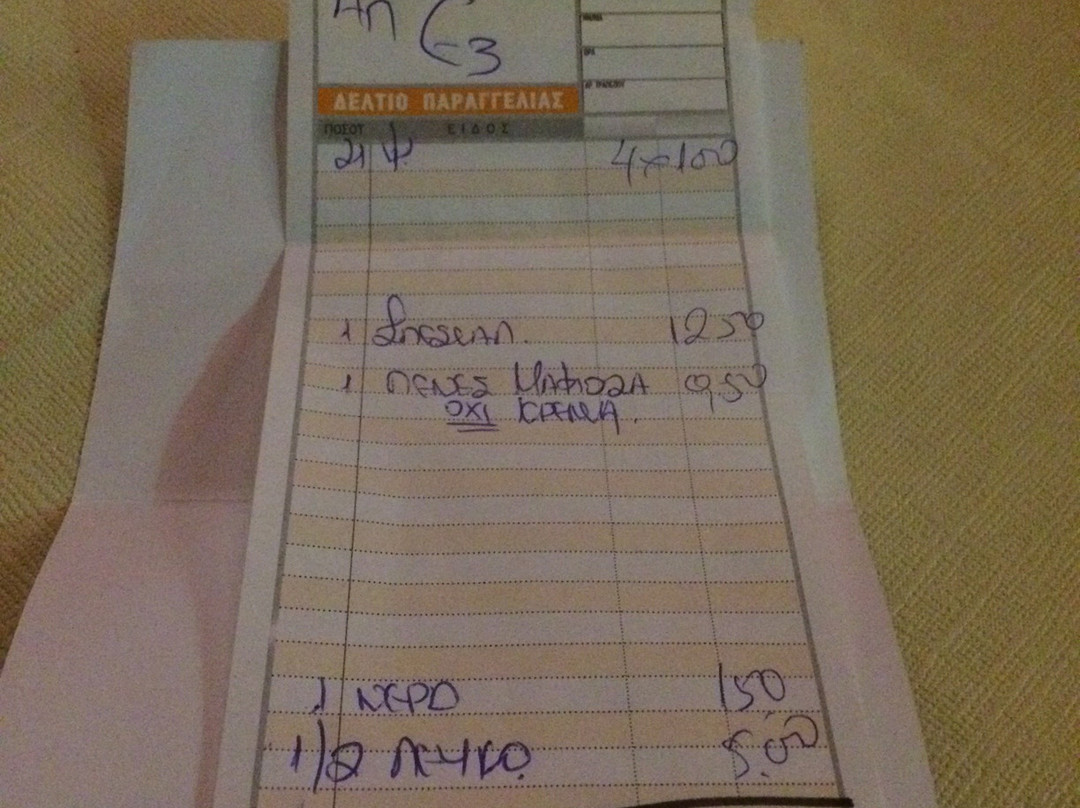 3
ΔΕΛΤΙΟ ΠΑΡΑΓΓΕΛΙΑΣ
ΠΟΣΟΤ ΕΙΔΟΣ
Ψ. 4×100
1 ΣΠΕΣΙΑΛ. 12 50
1 ΠΕΝΕΣ ΜΑΦΙΟΖΑ 9,50
ΟΧΙ ΚΡΕΜΑ.
1 ΝΕΡΟ 150
1/2 ΛΕΥΚΟ. 5,00